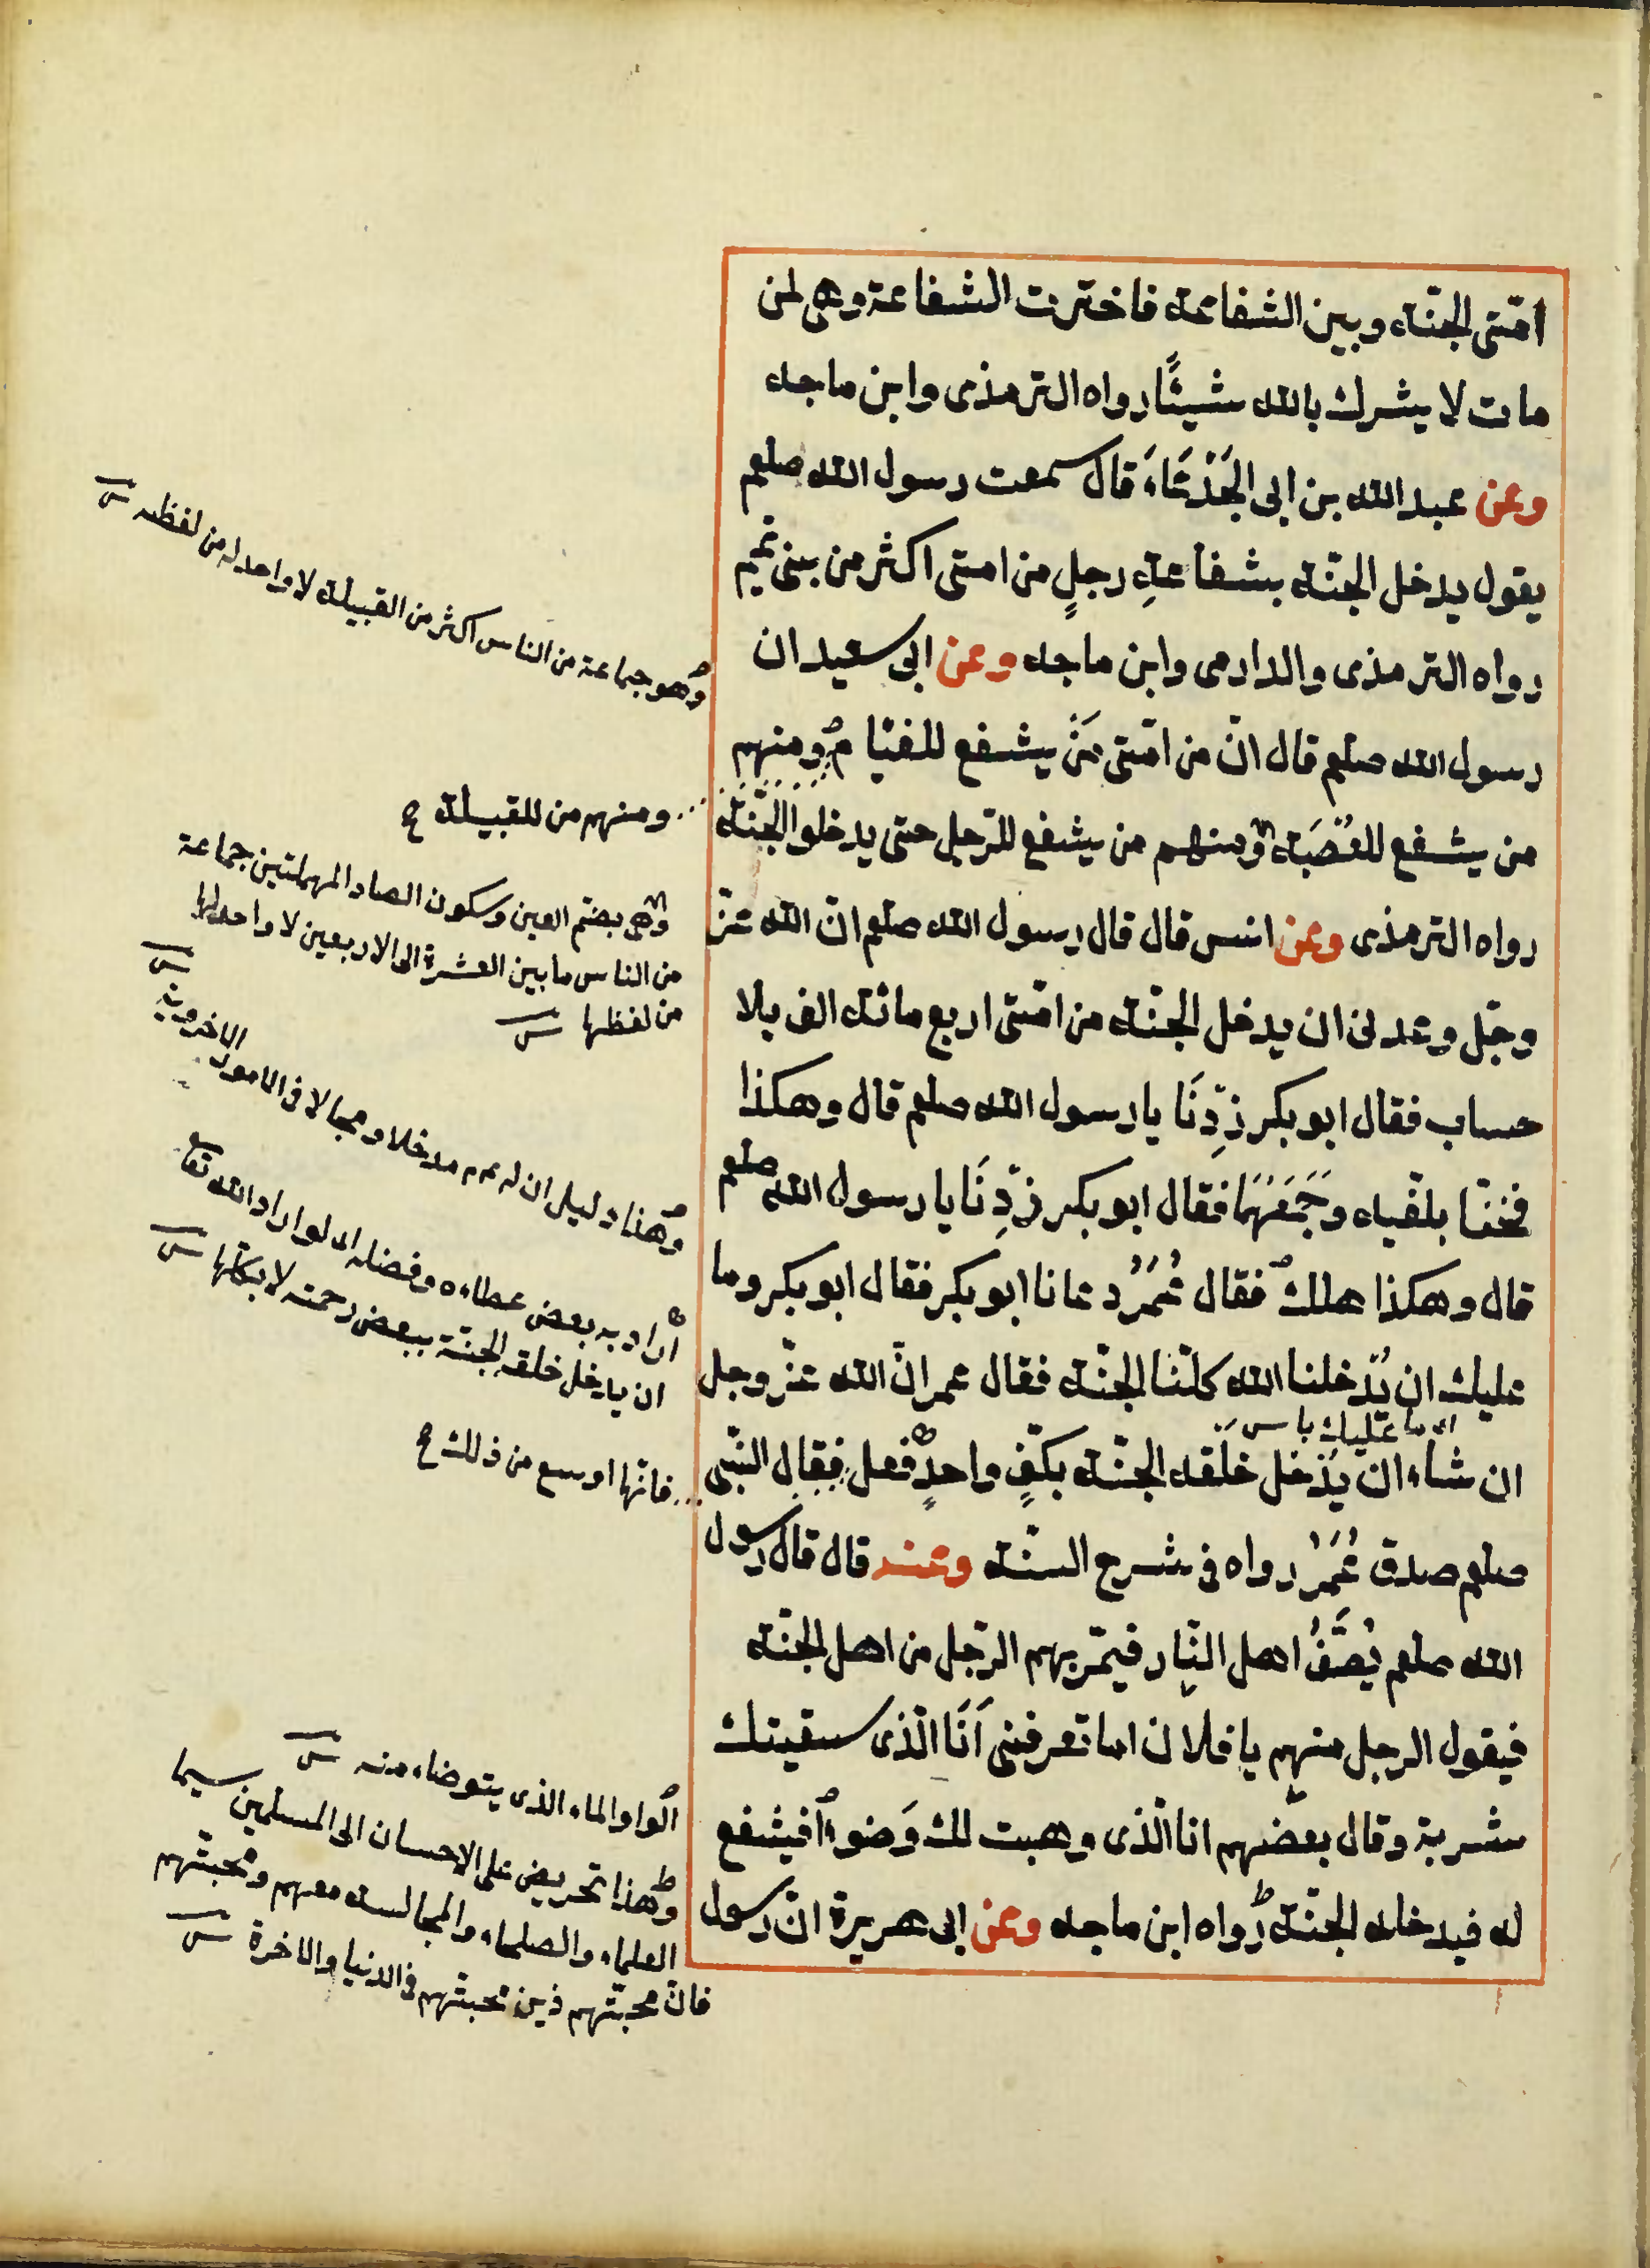 امّتى الجنّة وبين الشفاعة فاخترت الشفاعة وهى لمن
مات لا يشرك بالله شيئًا رواه الترمذى وابن ماجه
وعن عبد الله بن ابى الجَذْعَاءَ قال سمعت رسول الله صلعم
يقول يدخل الجنّة بشفاعةِ رجلٍ من امتى اكثر من بنى تميم
رواه الترمذى والدارمى وابن ماجه وعن ابى سعيد ان
رسول الله صلعم قال انّ من امّتى مَنْ يشفع للفئام ومنهم
من يشفع للعُصْبَة ومنهم من يشفع للرّجل حتى يدخلوا الجنّة
رواه الترمذى وعن انس قال قال رسول الله صلعم انّ الله عزّ
وجّل وعدنى ان يدخل الجنّة من امّتى اربع مائة الف بلا
حساب فقال ابو بكر زِدْنَا يا رسول الله صلعم قال وهكذا
فحثا بكفّيه وَجَمَعَهُمَا فقال ابو بكر زِدْنَا يا رسول الله صلعم
قال وهكذا فقال عُمَرُ دعنا يا ابو بكر فقال ابو بكر وما
عليك ان يُدْخلنا الله كلّنا الجنّة فقال عمر انّ الله عزّ وجل
اى ما عليك باس
ان شاء ان يُدْخل خَلْقه الجنّة بكفٍّ واحدٍ فعل فقال النّبى
صلعم صدق عُمَرُ رواه فى شرح السنّة وعنه قال قال رسول
الله صلعم يُصَفُّ اهل النّار فيمّر بهم الرّجل من اهل الجنّة
فيقول الرجل منهم يا فلان اما تعرفنى اَنَا الّذى سقيتك
شربة وقال بعضهم انا الّذى وهبت لك وَضوءًا فيشفع
له فيدخله الجنّة رواه ابن ماجه وعن ابى هريرة انّ رسول
وهو جماعة من الناس اكثر من القبيلة لا واحد له من لفظه
ومنهم من للقبيلة
وهى بضم العين وسكون الصاد المهملتين جماعة
من الناس ما بين العشرة الى الاربعين لا واحد لها
من لفظها
وهذا دليل ان له عم مدخلا ومجالا فى الامور الاخروية
اراد به بعض عطاءه وفضله اى لو اراد الله تعا
ان يدخل خلقه الجنّة ببعض رحمته لا بكلّها
فانّها اوسع من ذلك
الواو الماء الذى يتوضاء منه
وهذا تحريض على الاحسان الى المسلمين سيما
العلماء والصلحاء والمجالسة معهم ومحبّتهم
فانّ محبّتهم زين محبتهم فى الدنيا والاخرة